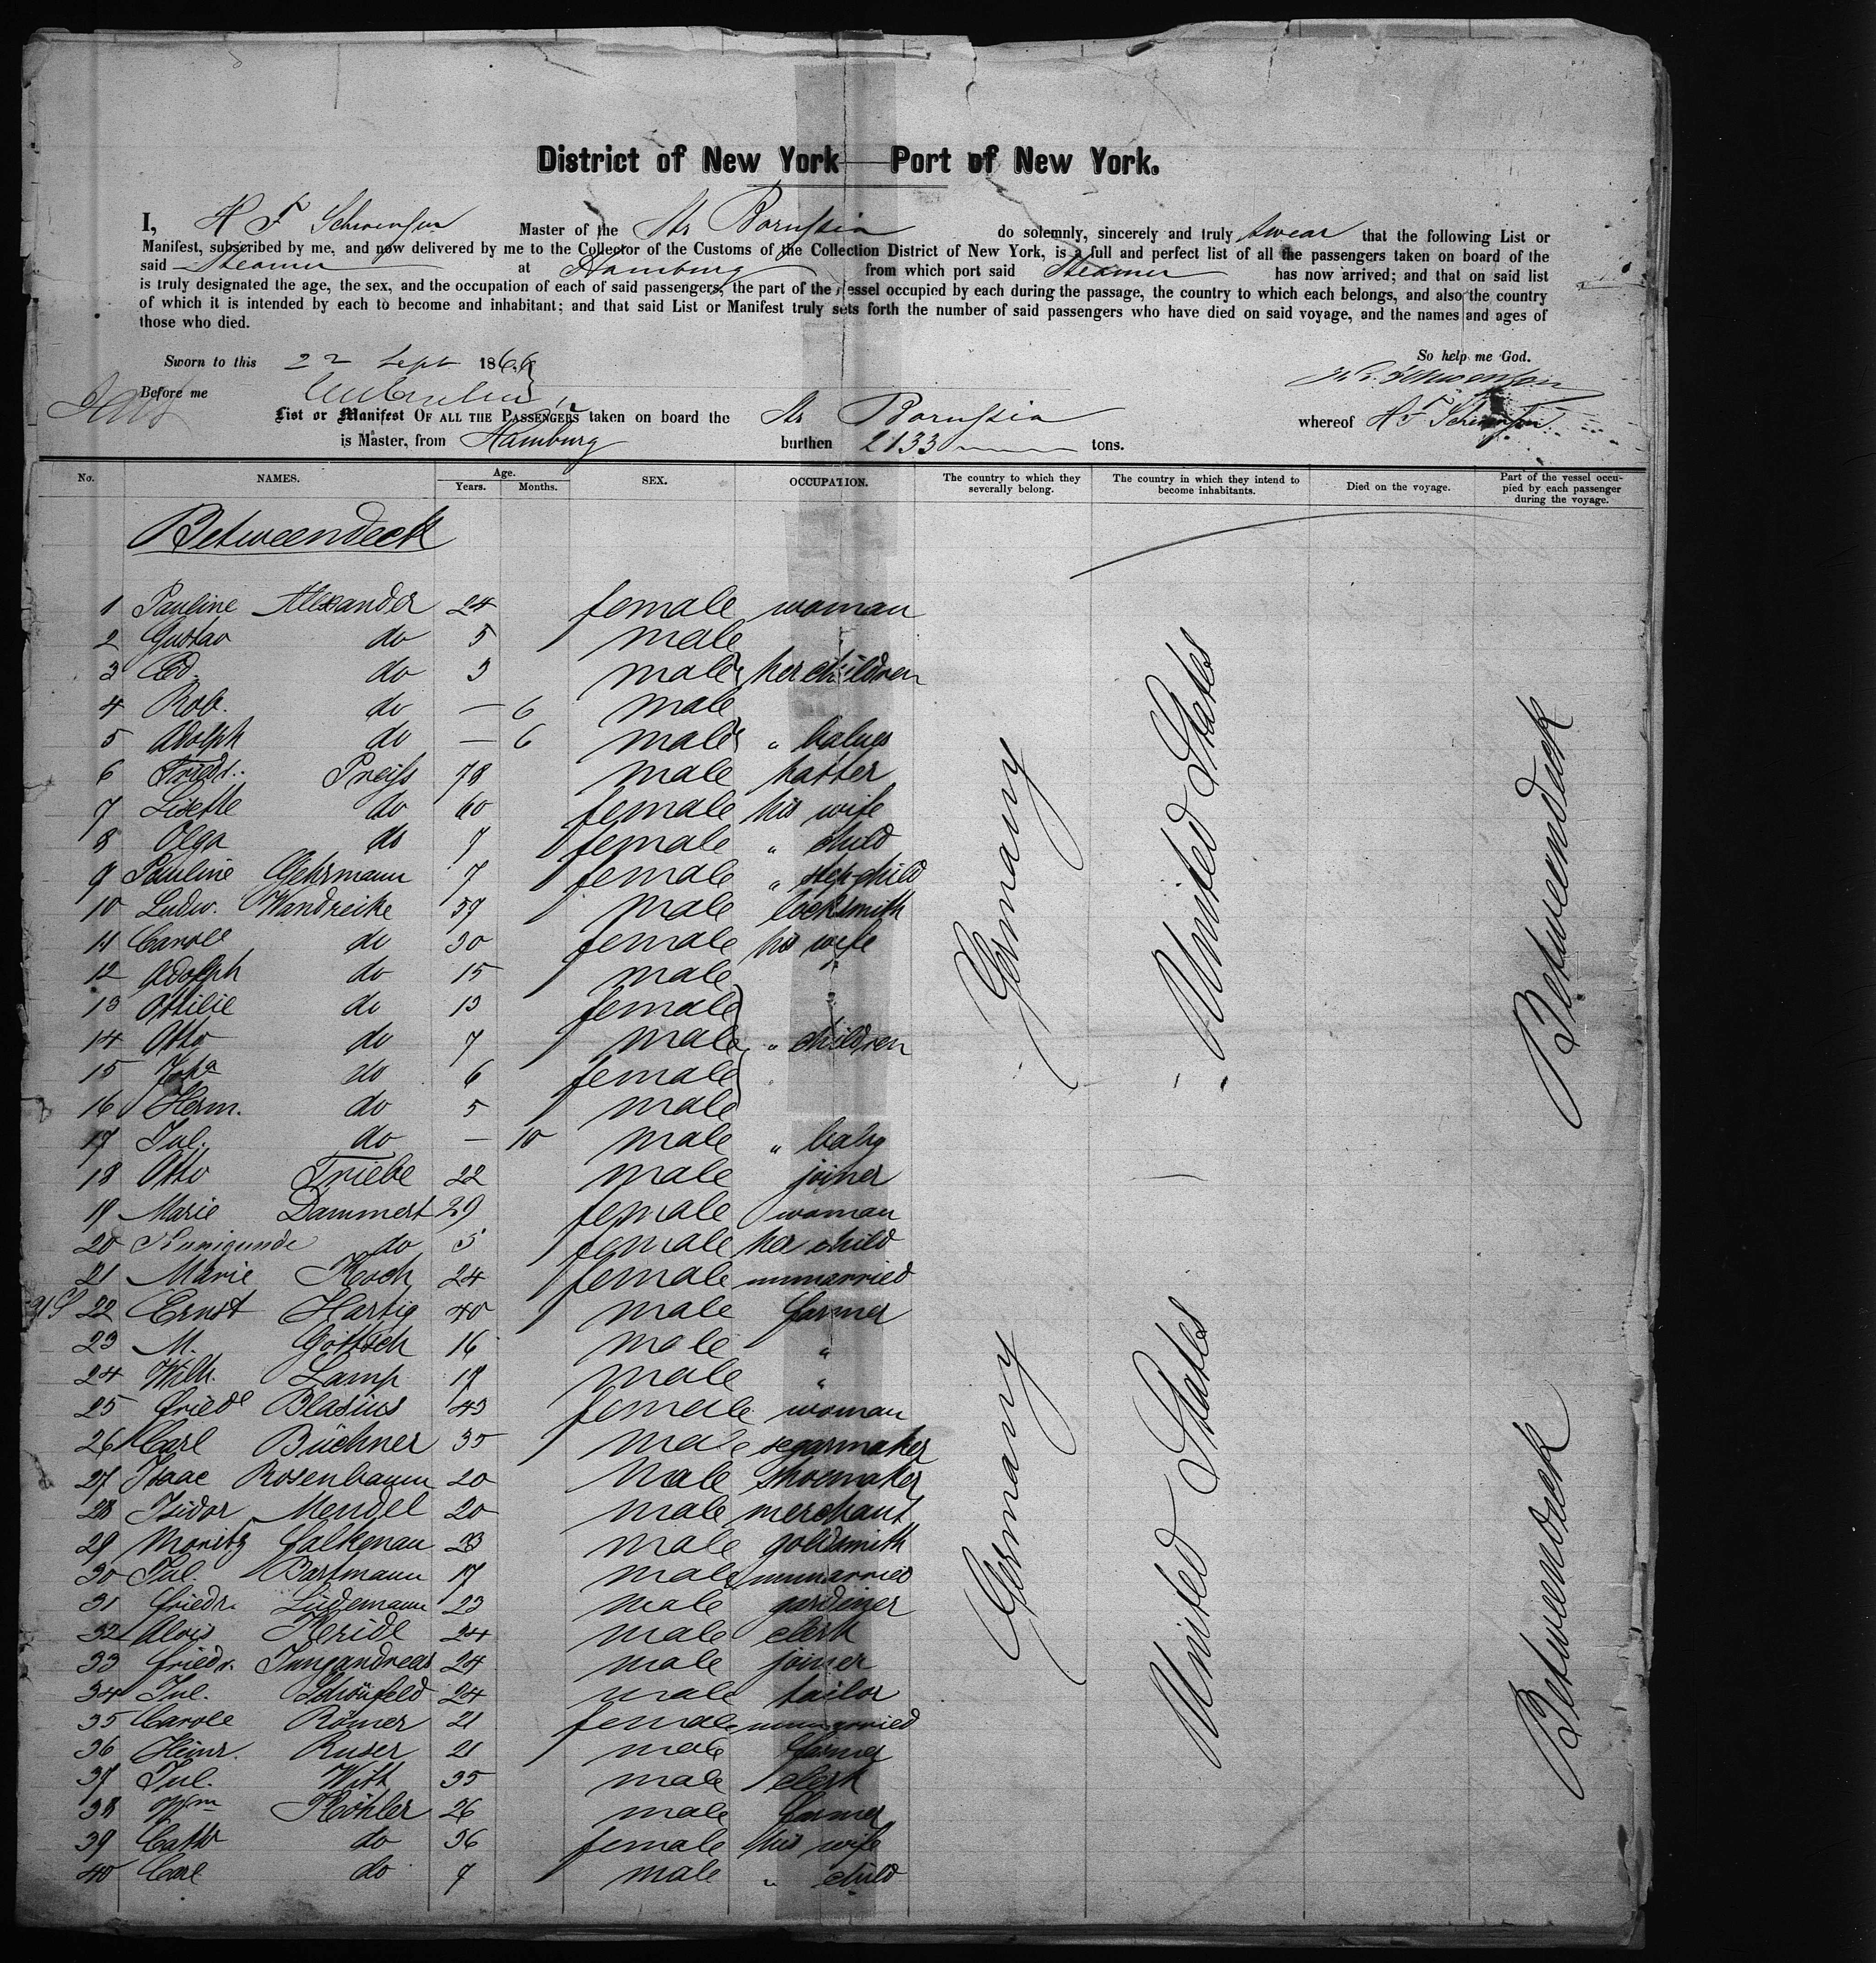 District of New York — Port of New York.
I, H F Schwensen Master of the Str Borussia do solemnly, sincerely and truly swear that the following List or
Manifest, subscribed by me, and now delivered by me to the Collector of the Customs of the Collection District of New York, is a full and perfect list of all the passengers taken on board of the
said Steamer at Hamburg from which port said Steamer has now arrived; and that on said list
is truly designated the age, the sex, and the occupation of each of said passengers, the part of the vessel occupied by each during the passage, the country to which each belongs, and also the country
of which it is intended by each to become and inhabitant; and that said List or Manifest truly sets forth the number of said passengers who have died on said voyage, and the names and ages of
those who died.
Sworn to this 22 Sept 1866
So help me God.
Before me
H. F. Schwensen
List or Manifest OF ALL THE PASSENGERS taken on board the Str Borussia whereof H F Schwensen
is Master, from Hamburg burthen 2133 tons.
No. NAMES. Age. Years. Months. SEX. OCCUPATION. The country to which they severally belong. The country in which they intend to become inhabitants. Died on the voyage. Part of the vessel occupied by each passenger during the voyage.
Betweendeck
1 Pauline Alexander 24 female woman
2 Gustav do 5 male
3 Ed. do 3 male her children
4 Rob. do — 6 male
5 Adolph do — 6 male " babies
6 Friedr. Preiss 78 male hatter
7 Lisette do 60 female his wife
8 Olga do 7 female " child
9 Pauline Gehrmann 7 female " step-child
10 Ludw. Wandreike 37 male locksmith
11 Carole do 30 female his wife
12 Adolph do 15 male
13 Ottilie do 13 female
14 Otto do 7 male " children
15 Joha do 6 female
16 Herm. do 5 male
17 Jul. do — 10 male " baby
18 Otto Triebe 22 male joiner
19 Marie Dammert 29 female woman
20 Kunigunde do 5 female her child
21 Marie Koch 24 female unmarried
22 Ernst Hartig 40 male farmer
23 M. Göttsch 16 male "
24 Wilh. Lamp 19 male "
25 Friede Blasius 43 female woman
26 Carl Büchner 35 male segarmaker
27 Isaac Rosenbaum 20 male shoemaker
28 Isidor Mendel 20 male merchant
29 Moritz Falkenau 23 male goldsmith
30 Jul. Bartmann 17 male unmarried
31 Friedr. Lüdemann 23 male gardener
32 Alois Keridl 24 male clerk
33 Friedr. Jungandreas 24 male joiner
34 Jul. Schönfeld 24 male tailor
35 Carole Römer 21 female unmarried
36 Heinr. Ruser 21 male farmer
37 Jul. Witt 35 male clerk
38 Wm Köhler 26 male farmer
39 Cath do 36 female his wife
40 Carl do 7 male " child
Germany
United States
Betweendeck
Germany
United States
Betweendeck